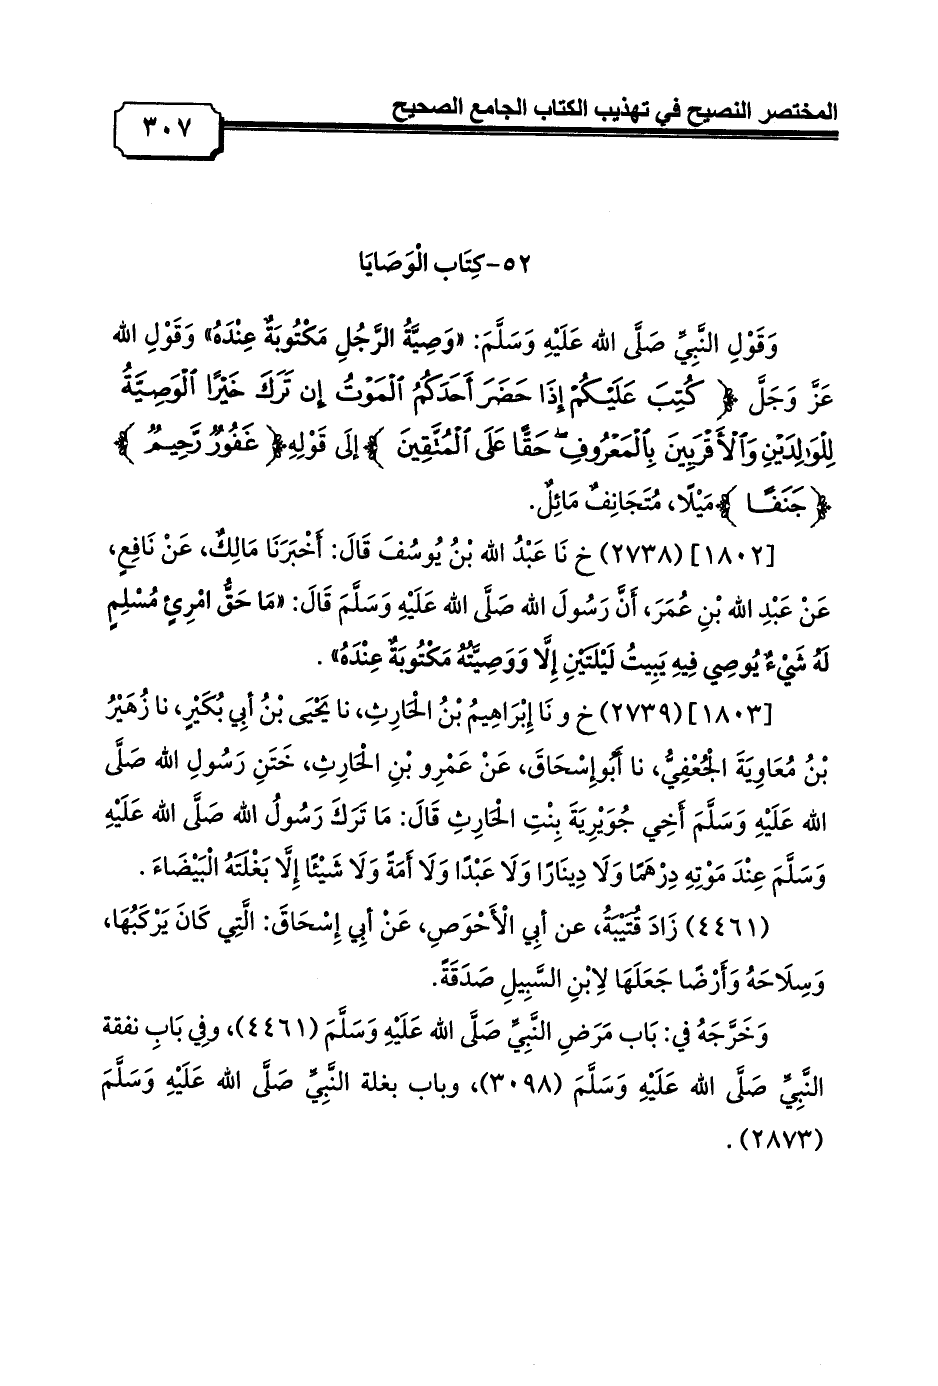 المختصر النصيح في تهذيب الكتاب الجامع الصحيح
٣٠٧
٥٢- كِتَاب الْوَصَايَا
وَقَوْلِ النَّبِيِّ صَلَّى الله عَلَيْهِ وَسَلَّمَ: «وَصِيَّةُ الرَّجُلِ مَكْتُوبَةٌ عِنْدَهُ» وَقَوْلِ الله
عَزَّ وَجَلَّ ﴿ كُتِبَ عَلَيْكُمْ إِذَا حَضَرَ أَحَدَكُمُ ٱلْمَوْتُ إِن تَرَكَ خَيْرًا ٱلْوَصِيَّةُ
لِلْوَٰلِدَيْنِ وَٱلْأَقْرَبِينَ بِٱلْمَعْرُوفِ ۖ حَقًّا عَلَى ٱلْمُتَّقِينَ ﴾ إِلَى قَوْلِهِ ﴿ غَفُورٌ رَّحِيمٌ ﴾
﴿ جَنَفًا ﴾ مَيْلًا، مُتَجَانِفٌ مَائِلٌ.
[١٨٠٢] (٢٧٣٨) خ نَا عَبْدُ الله بْنُ يُوسُفَ قَالَ: أَخْبَرَنَا مَالِكٌ، عَنْ نَافِعٍ،
عَنْ عَبْدِ الله بْنِ عُمَرَ، أَنَّ رَسُولَ الله صَلَّى الله عَلَيْهِ وَسَلَّمَ قَالَ: «مَا حَقُّ امْرِئٍ مُسْلِمٍ
لَهُ شَيْءٌ يُوصِي فِيهِ يَبِيتُ لَيْلَتَيْنِ إِلَّا وَوَصِيَّتُهُ مَكْتُوبَةٌ عِنْدَهُ» .
[١٨٠٣] (٢٧٣٩) خ و نَا إِبْرَاهِيمُ بْنُ الْحَارِثِ، نا يَحْيَى بْنُ أَبِي بُكَيْرٍ، نا زُهَيْرُ
بْنُ مُعَاوِيَةَ الْجُعْفِيُّ، نا أَبُو إِسْحَاقَ، عَنْ عَمْرِو بْنِ الْحَارِثِ، خَتَنِ رَسُولِ الله صَلَّى
الله عَلَيْهِ وَسَلَّمَ أَخِي جُوَيْرِيَةَ بِنْتِ الْحَارِثِ قَالَ: مَا تَرَكَ رَسُولُ الله صَلَّى الله عَلَيْهِ
وَسَلَّمَ عِنْدَ مَوْتِهِ دِرْهَمًا وَلَا دِينَارًا وَلَا عَبْدًا وَلَا أَمَةً وَلَا شَيْئًا إِلَّا بَغْلَتَهُ الْبَيْضَاءَ .
(٤٤٦١) زَادَ قُتَيْبَةُ، عن أَبِي الْأَحْوَصِ، عَنْ أَبِي إِسْحَاقَ: الَّتِي كَانَ يَرْكَبُهَا،
وَسِلَاحَهُ وَأَرْضًا جَعَلَهَا لِابْنِ السَّبِيلِ صَدَقَةً.
وَخَرَّجَهُ في: بَاب مَرَضِ النَّبِيِّ صَلَّى الله عَلَيْهِ وَسَلَّمَ (٤٤٦١)، وفِي بَابِ نفقة
النَّبِيِّ صَلَّى الله عَلَيْهِ وَسَلَّمَ (٣٠٩٨)، وباب بغلة النَّبِيِّ صَلَّى الله عَلَيْهِ وَسَلَّمَ
(٢٨٧٣) .